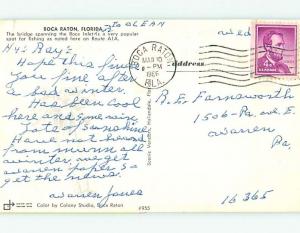 BOCA RATON, FLORIDA
The bridge spanning the Boca Inlet is a very popular
spot for fishing as noted here on Route A1A.
Hy: Ray:
Hope this finds
you fine after
a bad winter.
Has been cool
here and some rain.
Lots of sunshine
Have not heard
from all
winter, we get
Warren paper so
get the news.
Warren Jones
Color by Colony Studio, Boca Raton
#955
BOCA RATON
MAR 10
PM
1966
FLA.
address
4¢
R. E. Farnsworth
1506-Pa. ave. E.
Warren
Pa.
16365